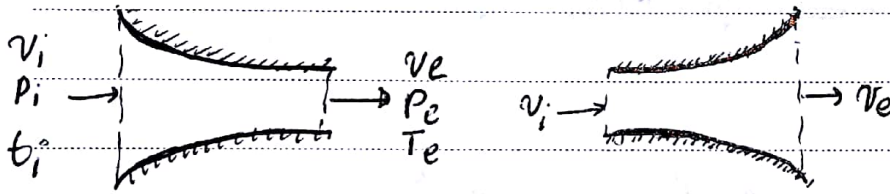 v_i
P_i
t_i
v_e
P_e
T_e
v_i
v_e